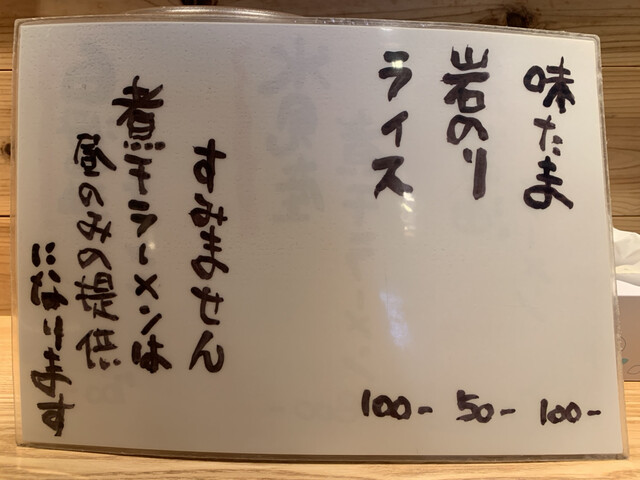 味たま 100-
岩のり 50-
ライス 100-
すみません
煮干ラーメンは
昼のみの提供
になります